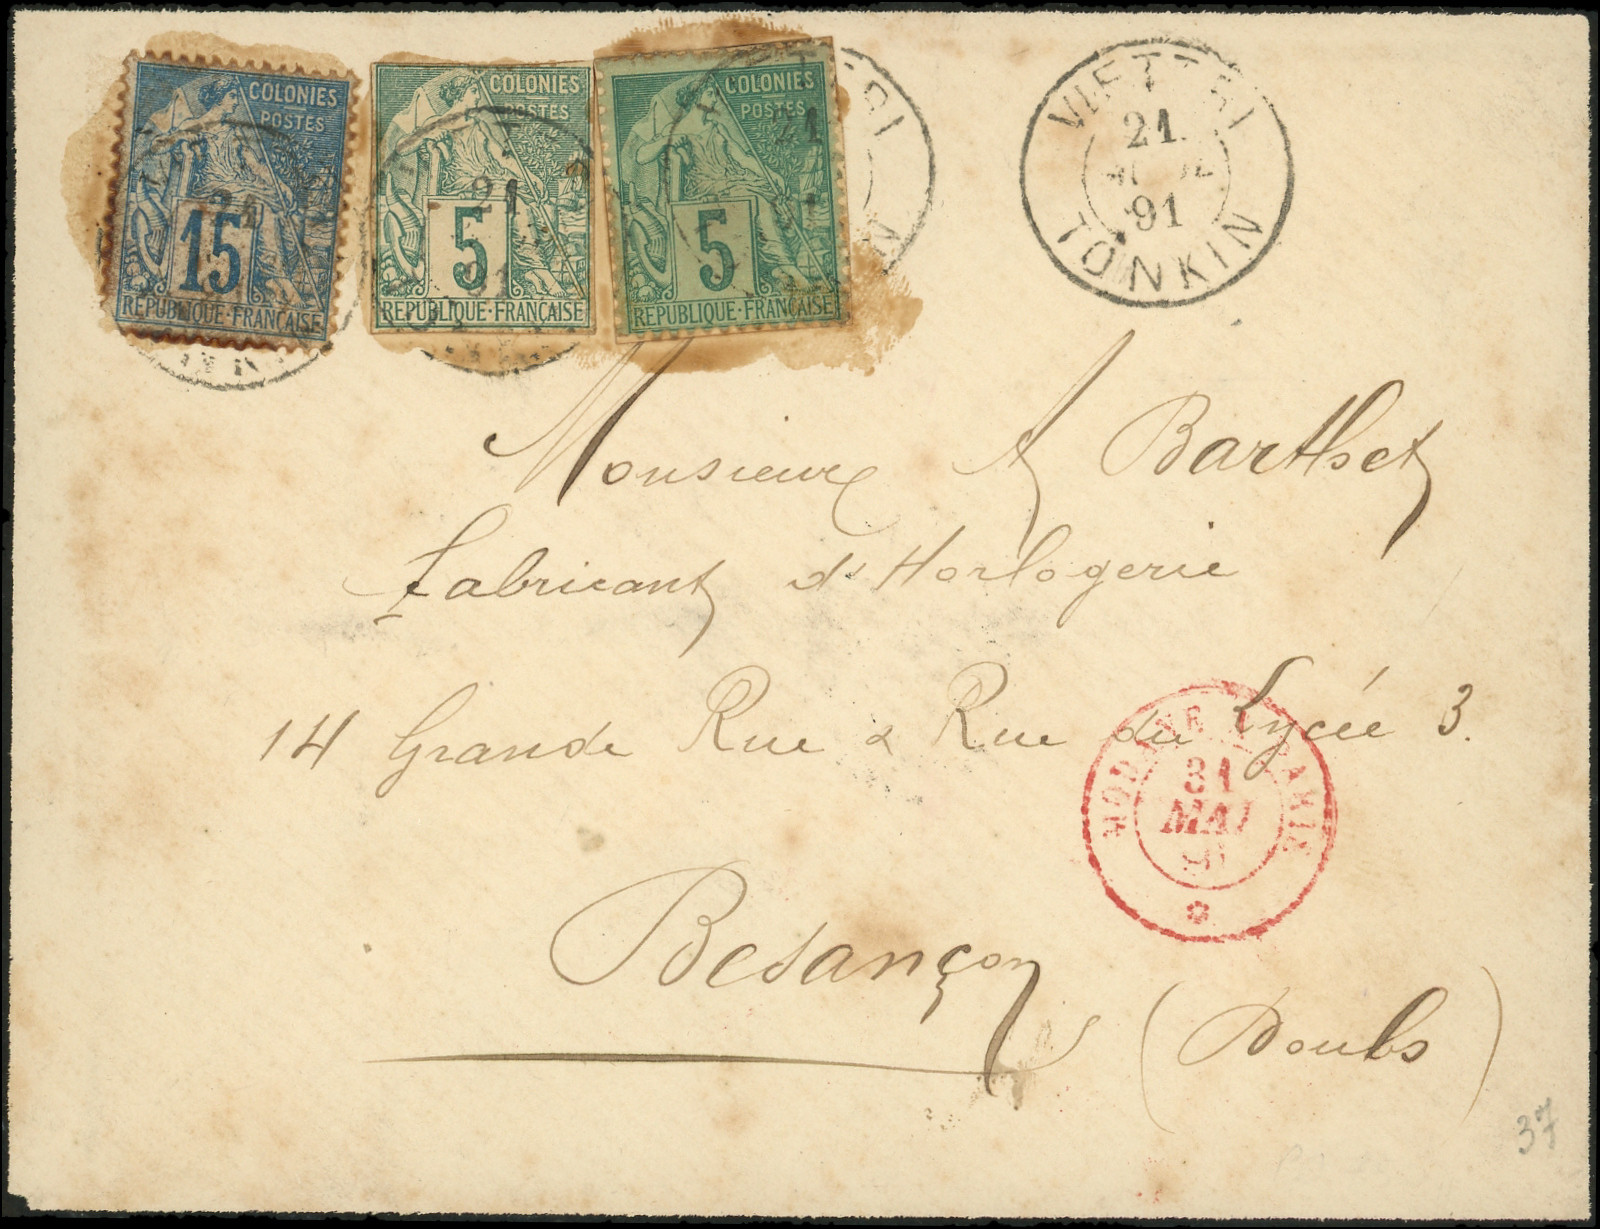 COLONIES
POSTES
15
REPUBLIQUE·FRANÇAISE
COLONIES
POSTES
5
REPUBLIQUE·FRANÇAISE
COLONIES
POSTES
5
REPUBLIQUE·FRANÇAISE
21
21
21
91
VIETTRI
21
91
TONKIN
Monsieur A Barthet
Fabricant d'Horlogerie
14 Grande Rue & Rue du Lycée 3.
MODANE
31
MAI
Besançon
(Doubs)
37